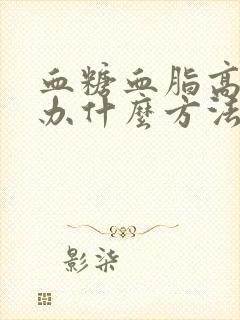 血糖血脂高
办什麽方法
影柒